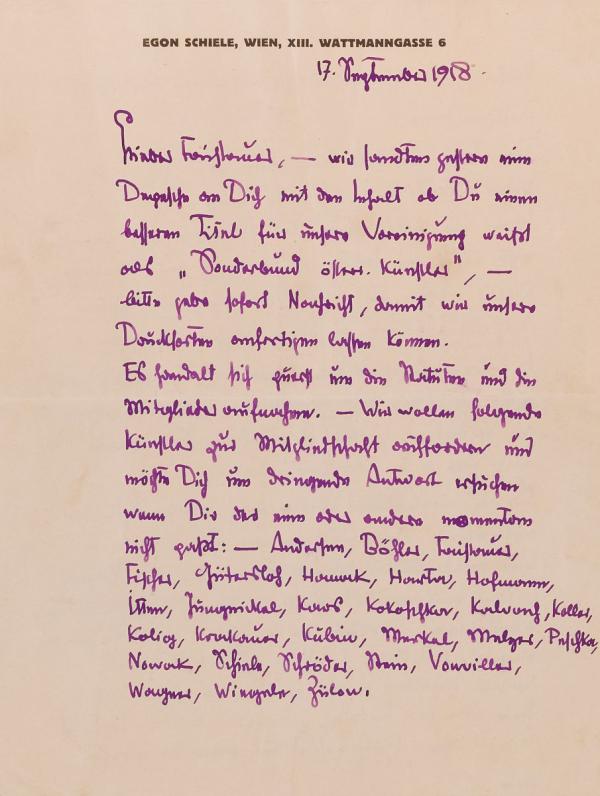 EGON SCHIELE, WIEN, XIII. WATTMANNGASSE 6
17. September 1918.
Lieber Faistauer, — wir sandten gestern eine
Depesche an Dich mit den Inhalt ob Du einen
besseren Titel für unsere Vereinigung weißt
als „Sonderbund österr. Künstler”, —
bitte gebe sofort Nachricht, damit wir unsere
Drucksorten anfertigen lassen können.
Es handelt sich zuerst um die Statuten und die
Mitgliederaufnahme. — Wir wollen folgende
Künstler zur Mitgliedschaft auffordern und
möchte Dich um dringende Antwort ersuchen
wenn Dir der eine oder andere momentan
nicht paßt: — Andersen, Böhler, Faistauer,
Fischer, Gütersloh, Hanak, Harta, Hofmann,
Itten, Jungnickel, Kars, Kokoschka, Kalvach, Keller,
Kolig, Krakauer, Kubin, Merkel, Melzer, Peschka,
Nowak, Schiele, Schröder, Stein, Vonviller,
Wagner, Wiegele, Zülow.